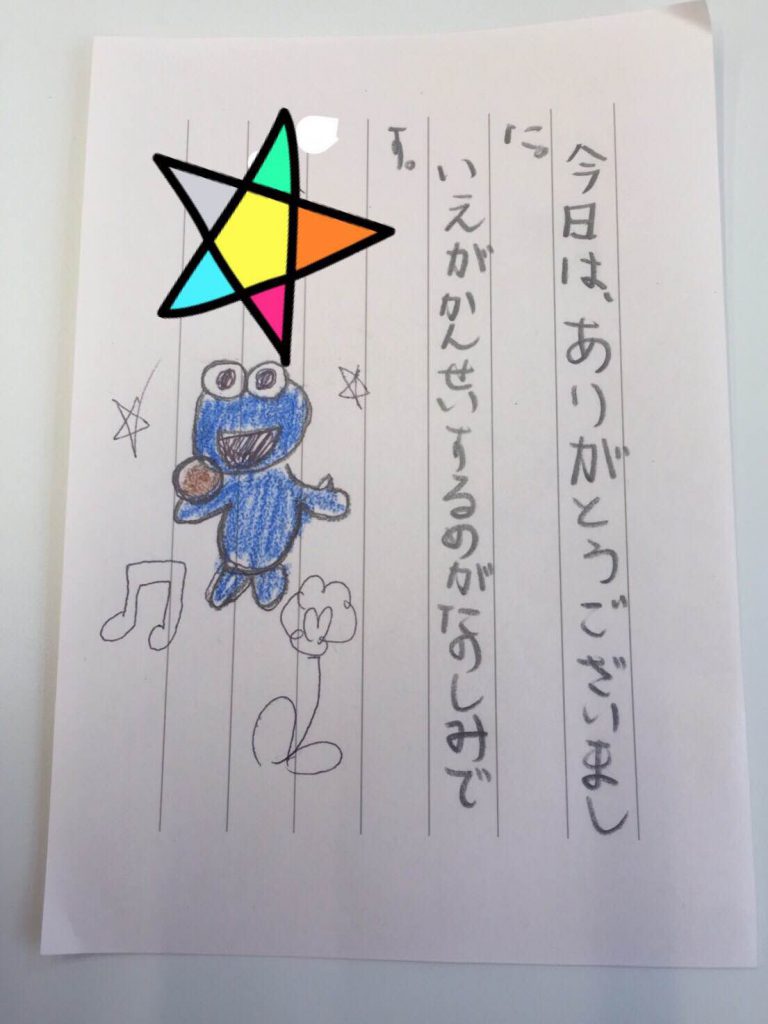 今日は、ありがとうございまし
た。
いえがかんせいするのがたのしみで
す。